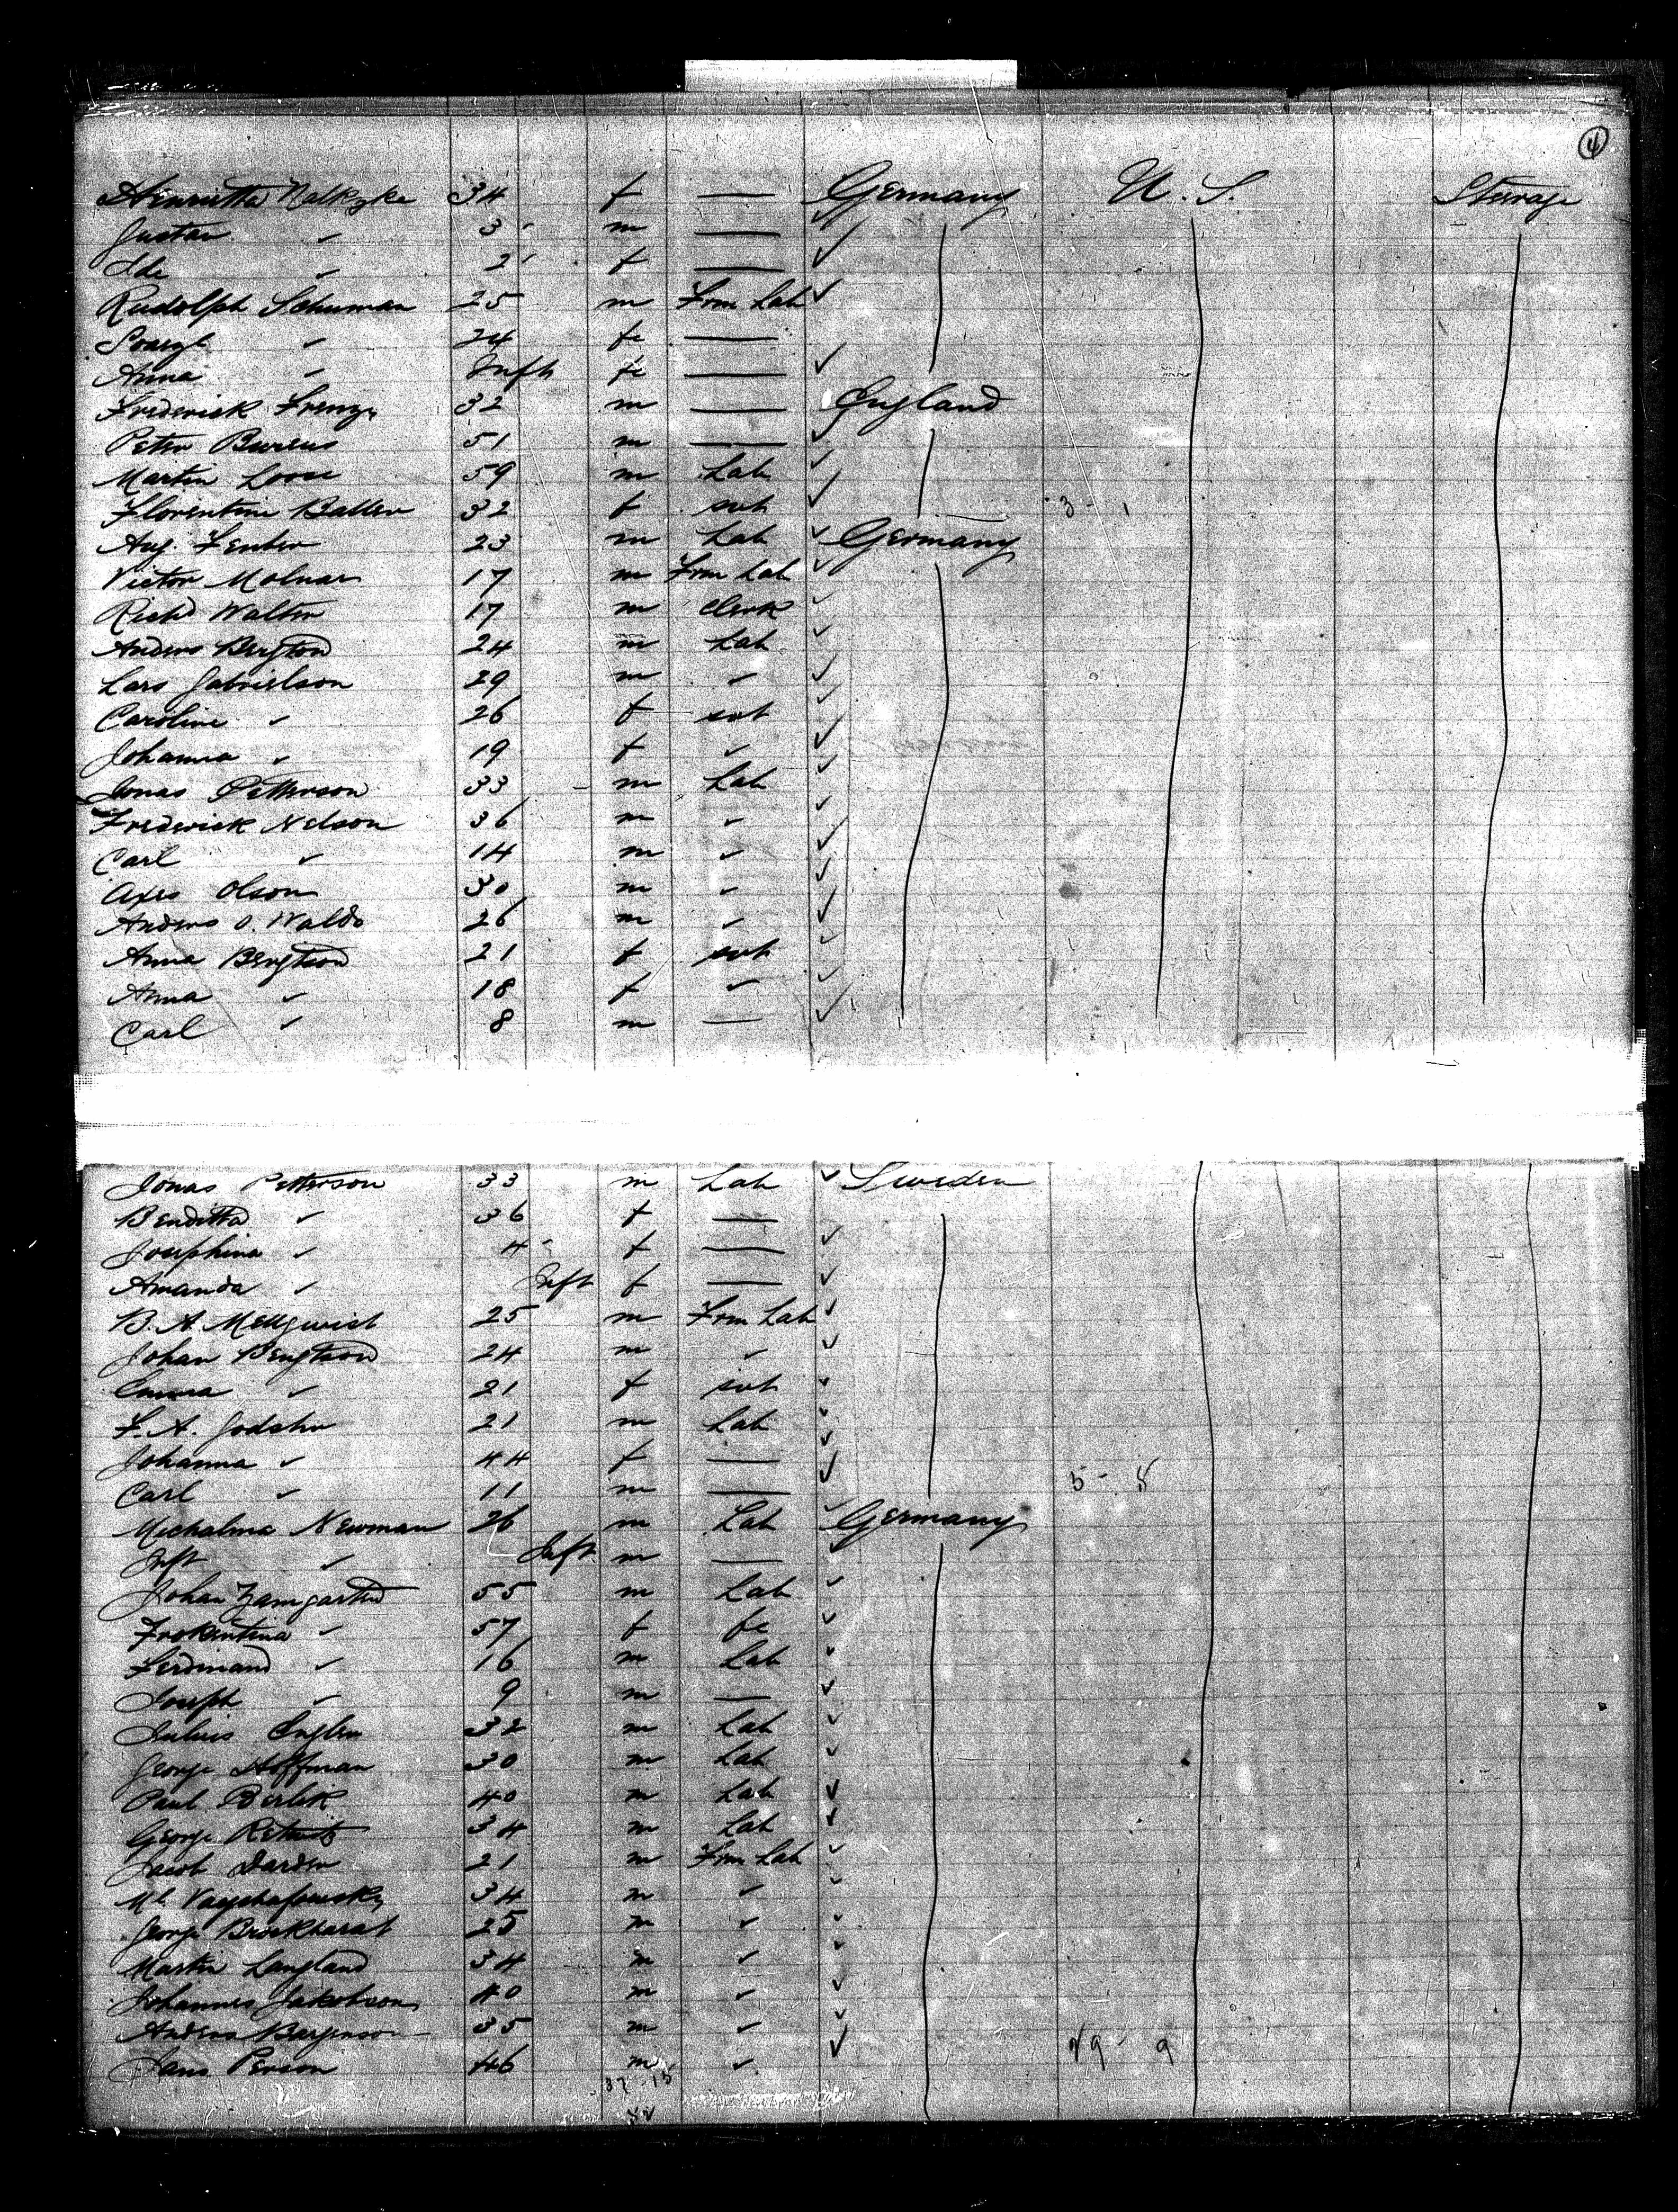 4
Henrietta 34 f — Germany U.S. Steerage
Gustav " 3 m —
Ida " 2 f —
Rudolph Schuman 25 m Frm Lab
" 24 fe —
Anna " Inft fe —
Frederick Frenzy 32 m — England
Peter Bureus 51 m —
Martin Loose 59 m Lab
Florentine Batler 32 f svt 3 - 1
Aug. Fenter 23 m Lab Germany
Victor Molnar 17 m Frm Lab
Richd Walter 17 m Clerk
Anders Bengtson 24 m Lab
Lars Gabrielson 29 m "
Caroline " 26 f svt
Johanna " 19 f "
Jonas Petterson 33 m Lab
Frederick Nelson 36 m "
Carl " 14 m "
Axes Olson 30 m "
Anders O. Waldo 26 m "
Anna Bengtson 21 f svt
Anna " 18 f "
Carl " 8 m —
Jonas Petterson 33 m Lab Sweden
Benditta " 36 f —
Josephina " 4 f —
Amanda " Inft f —
B. A. Mellqwist 25 m Frm Lab
Johan Bengtson 24 m "
Emma " 21 f svt
F. A. 21 m Lab
Johanna " 44 f —
Carl " 11 m — 5 - 8
Michalina Newman 26 m Lab Germany
Inft " Inft m —
Johan Zamgarten 55 m Lab
" 57 f fe
Ferdinand " 16 m Lab
Joseph " 9 m —
Julius Engler 32 m Lab
George Hoffman 30 m Lab
Paul Berlik 40 m Lab
George 34 m Lab
Jacob Darden 21 m Frm Lab
34 m "
George Brockharat 25 m "
Martin Langland 34 m "
Johannes Jakobson 40 m "
Anders 35 m "
Person 46 m " 29 - 9
37 - 15